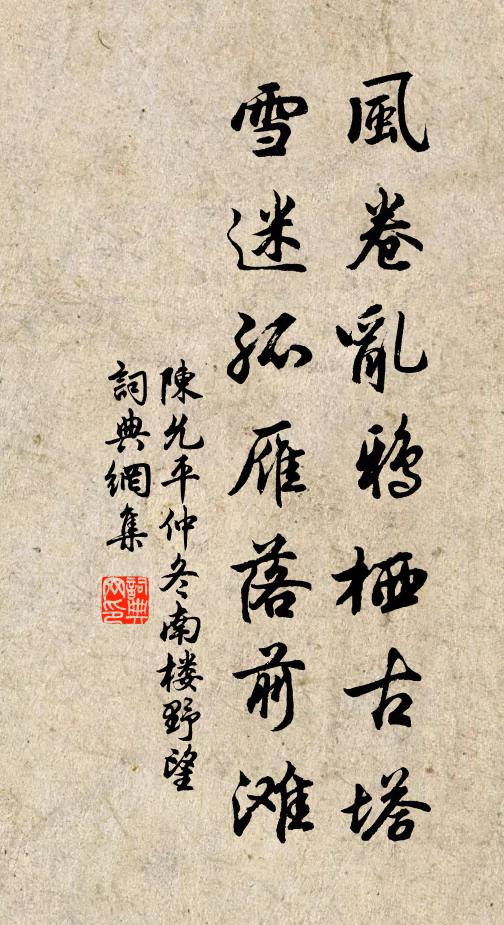 風卷亂鴉栖古塔
雪迷孤雁落前滩
陳允平仲冬南楼野望
詞典網集
詞典網印